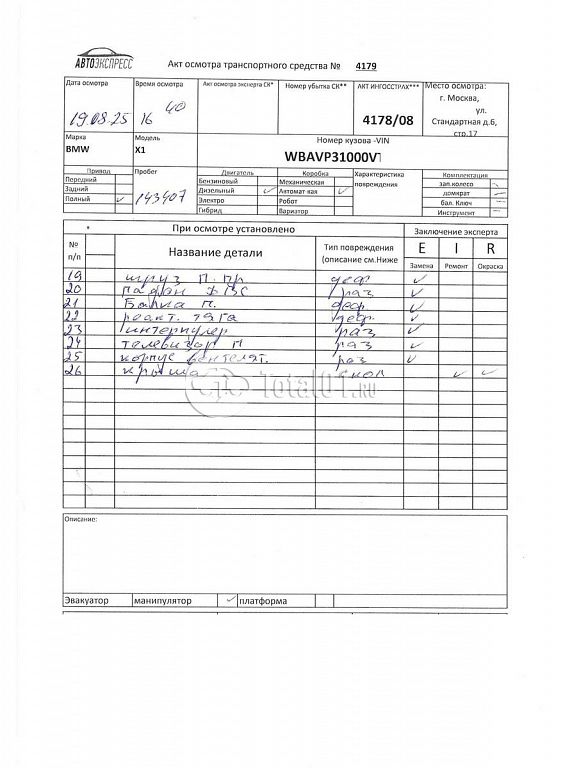 АВТОЭКСПРЕСС
Акт осмотра транспортного средства № 4179
Дата осмотра
19.08.25
Время осмотра
16 40
Акт осмотра эксперта СК*
Номер убытка СК**
АКТ ИНГОССТРАХ***
4178/08
Место осмотра:
г. Москва,
ул.
Стандартная д.6,
стр.17
Марка
BMW
Модель
X1
Номер кузова -VIN
WBAVP31000V
Привод
Передний
Задний
Полный
Пробег
143407
Двигатель
Бензиновый
Дизельный
Электро
Гибрид
Коробка
Механическая
Автомат кая
Робот
Вариатор
Характеристика
повреждения
Комплектация
зап.колесо
домкрат
бал. Ключ
Инструмент
* При осмотре установлено
Заключение эксперта
№
п/п
Название детали
Тип повреждения
(описание см.Ниже
E I R
Замена Ремонт Окраска
19 шруз п. пр деф
20 падон ДВС раз
21 Балка п. деф
22 реакт. тяга деф
23 интеркулер раз
24 телевизор п раз
25 корпус вентелят. раз
26 крыша скол
Total01.RU
Описание:
Эвакуатор манипулятор платформа